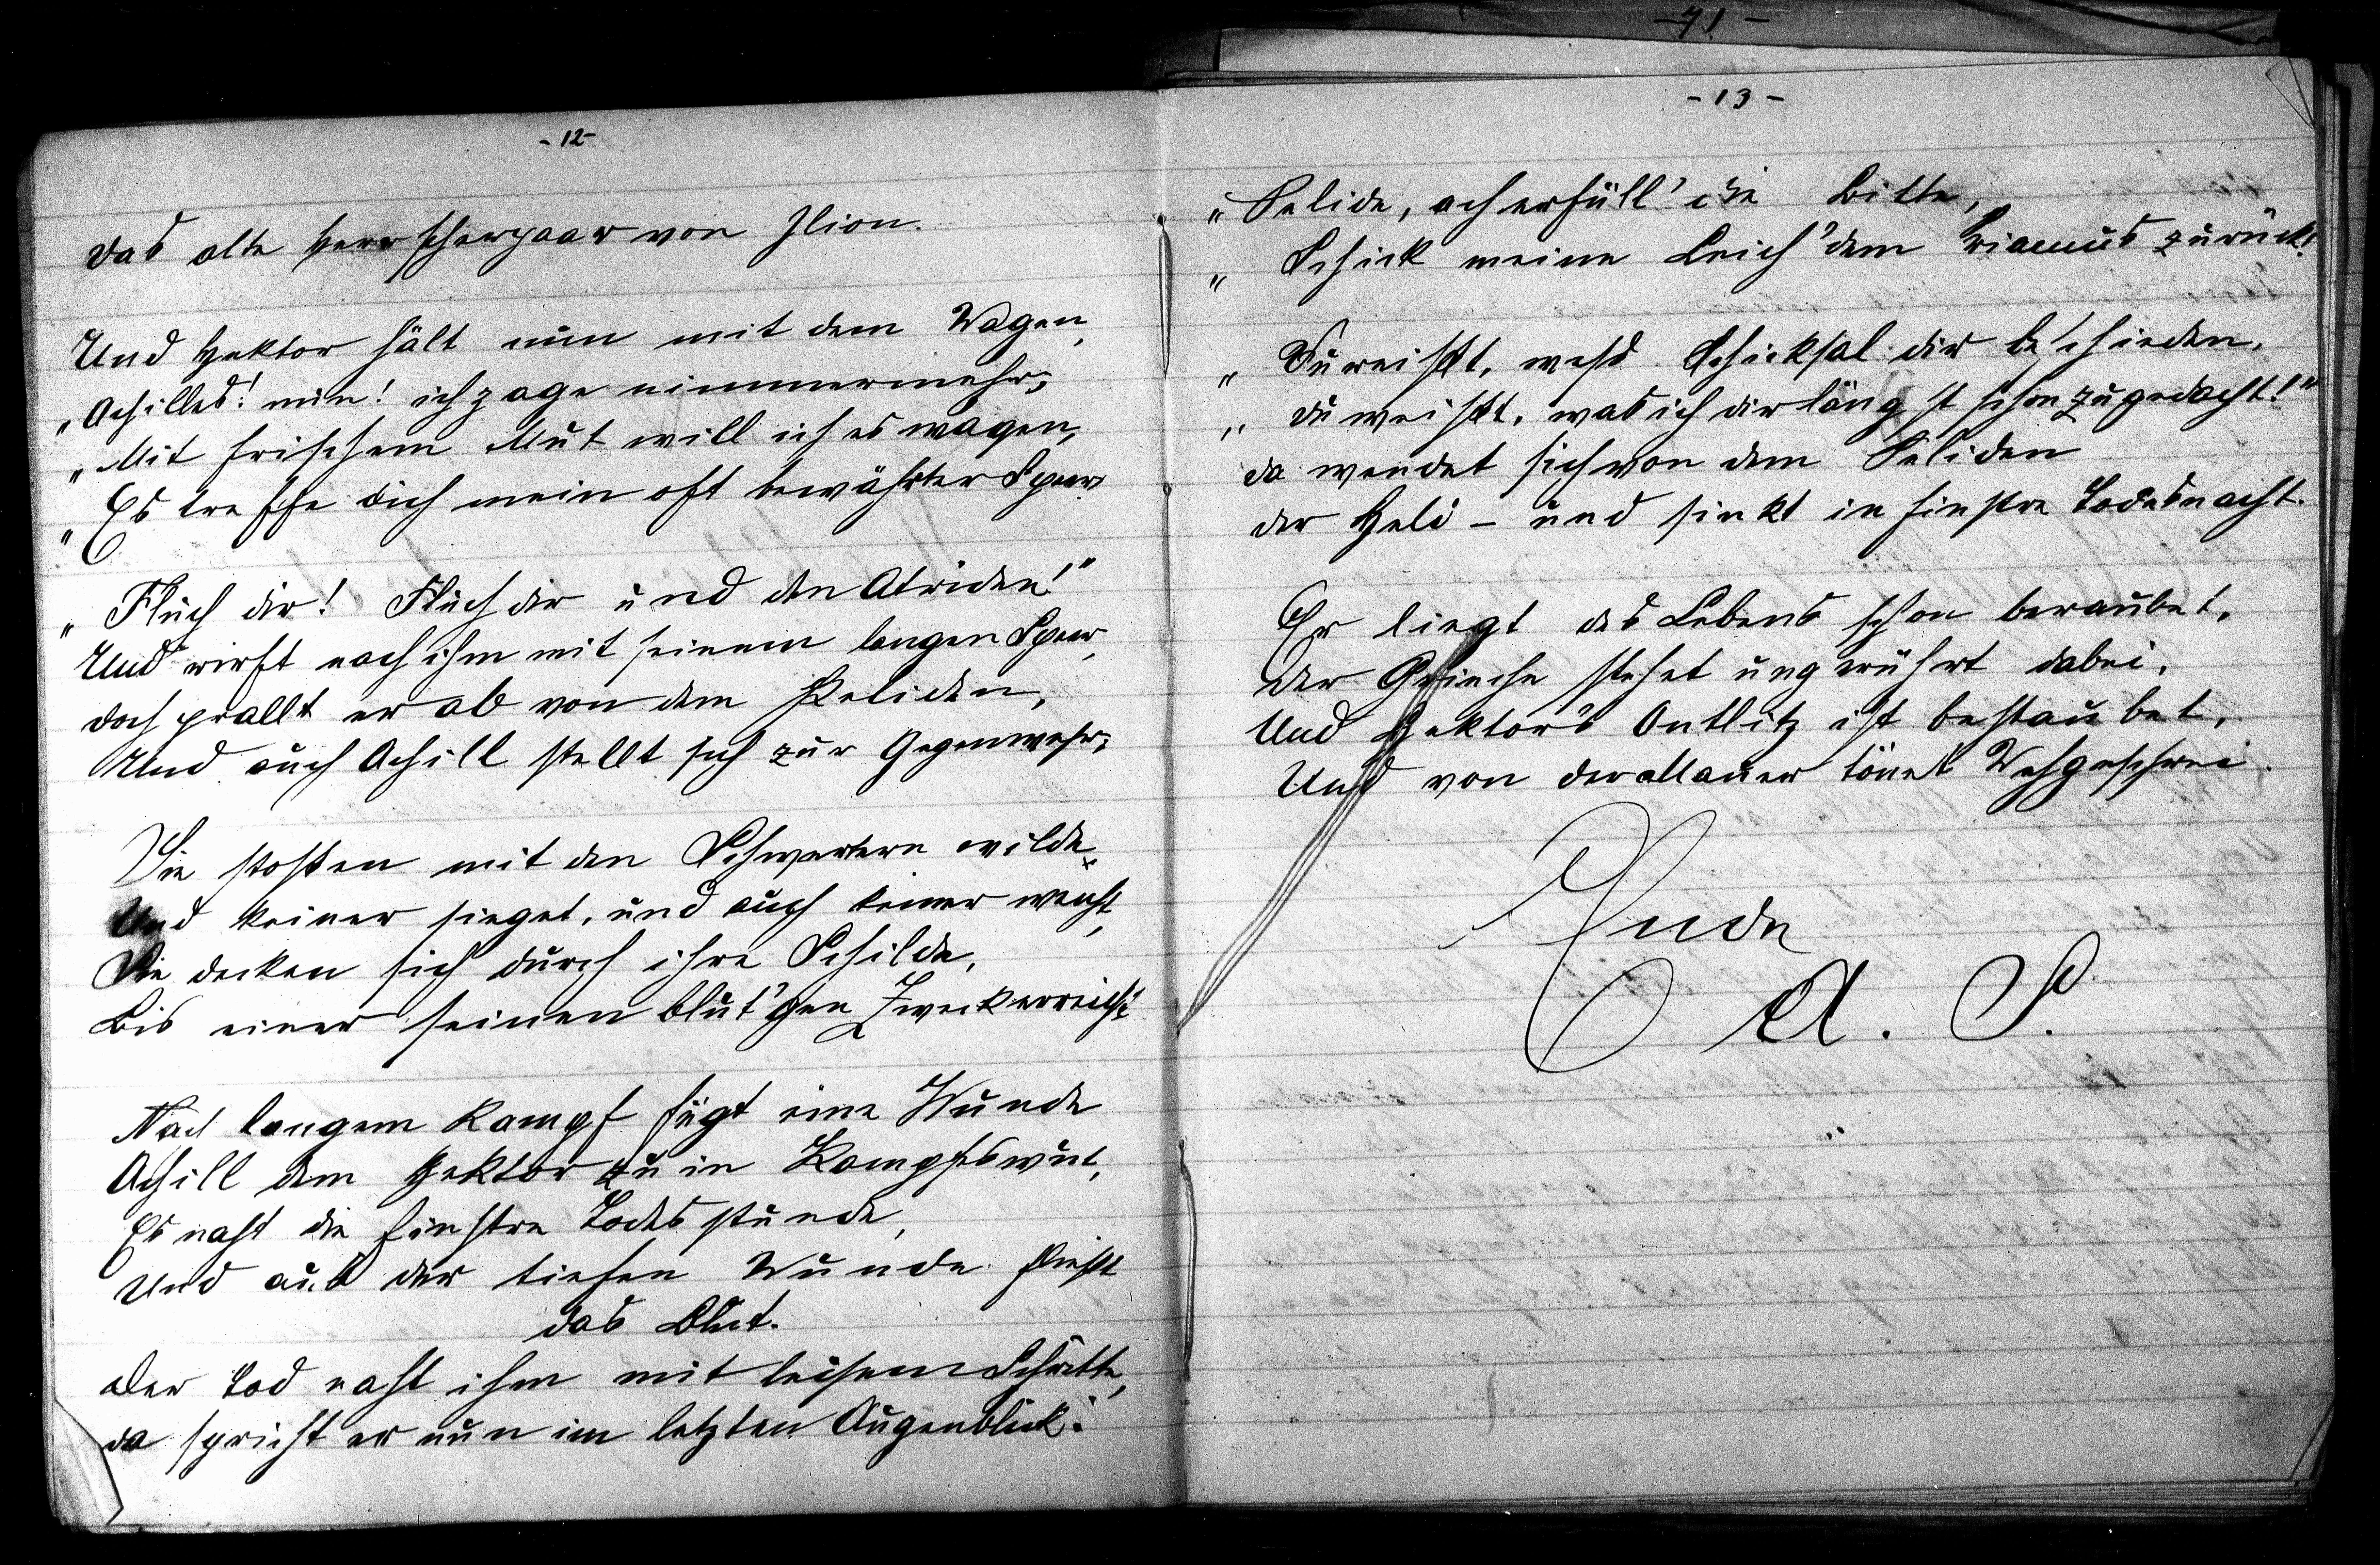 - 71 -
- 12 -
Das alte Herrscherpaar von Ilion.
Und Hektor hält nun mit dem Wagen,
„Achilles! nun! ich zage nimmermehr;
„Mit frischem Mut will ich es wagen,
„Es treffe dich mein oft bewährter Speer.
„Fluch dir! Fluch dir und den Atriden!"
Und wirft nach ihm mit seinem langen Speer,
doch prallt er ab von dem Peliden,
Und auch Achill stellt sich zur Gegenwehr;
Sie stoßen mit den Schwertern wilde,
Und keiner sieget, und auch keiner weicht,
Sie decken sich durch ihre Schilde,
Bis einer seinen blut'gen Zweck erreicht
Nach langem Kampf fügt eine Wunde
Achill dem Hektor zu in Kampfeswut,
Es naht die finstre Todesstunde,
Und aus der tiefen Wunde fließt
das Blut.
Der Tod naht ihm mit leisem Schritte,
da spricht er nun im letzten Augenblick:
- 13 -
„Pelide, ach erfüll' die Bitte,
„Schick meine Leich' dem Priamus zurück!
„Du weißt, welch Schicksal dir beschieden,
„du weißt, was ich dir längst schon zugedacht!"
da wendet sich von dem Peliden
der Held – und sinkt in finstre Todesnacht.
Er liegt des Lebens schon beraubet,
der Grieche stehet ungerührt dabei,
Und Hektor's Antlitz ist bestaubet,
Und von der Mauer tönet Wehgeschrei.
Ende
A. S.